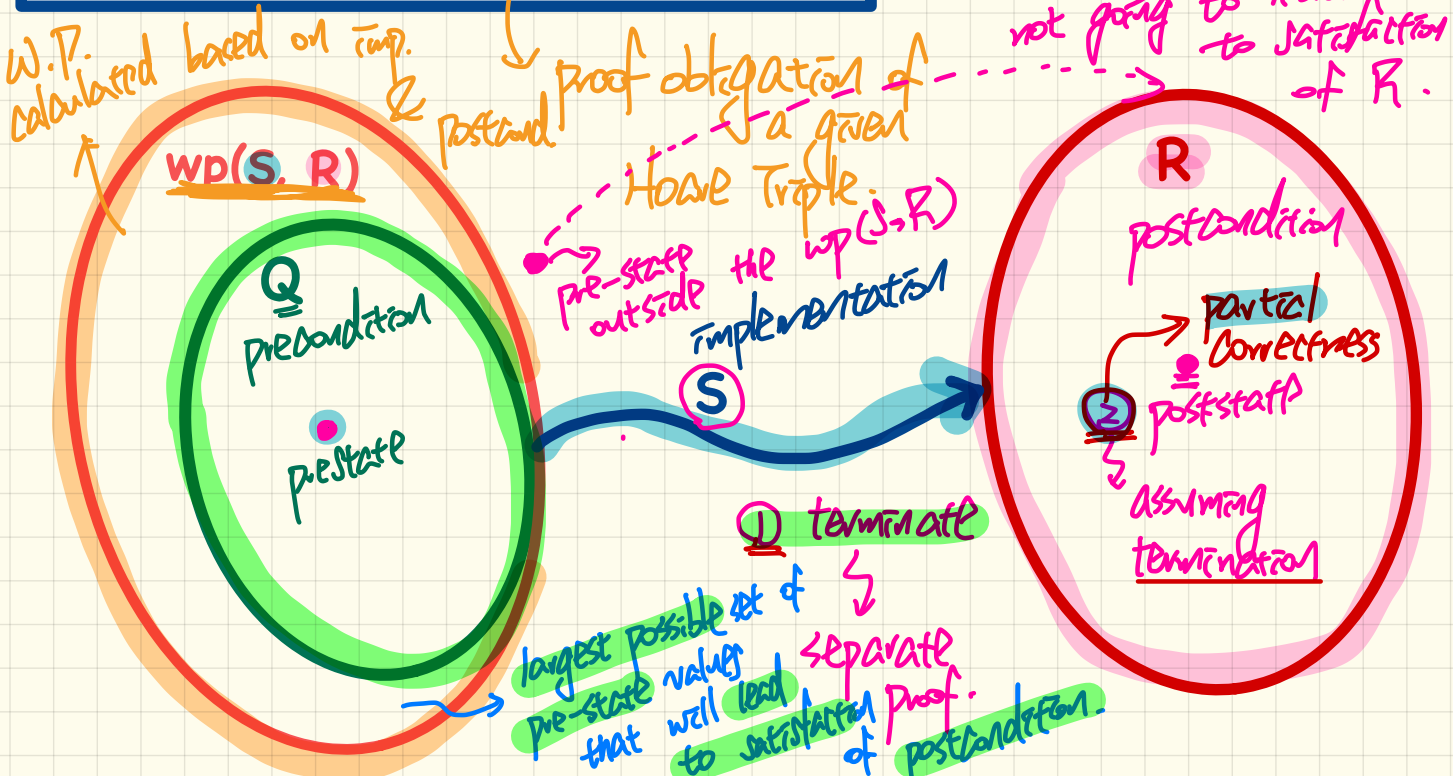 W.P.
calculated based on imp.
&
postcond.
proof obligation of
a given
Hoare Triple.
not going to
to satisfaction
of R.
wp(S, R)
Q
precondition
prestate
pre-state
outside the wp(S, R)
implementation
S
R
postcondition
partial
correctness
2
poststate
assuming
termination
1 terminate
separate
proof.
largest possible set of
pre-state values
that will lead
to satisfaction
of postcondition.